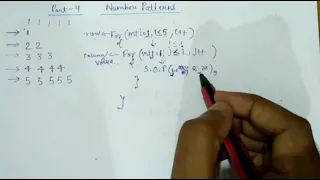 Part-4 Number Patterns
1
2 2
3 3 3
4 4 4 4
5 5 5 5 5
row ← For (int i=1, i≤5, i++
{
← For (int j=1; j≤i, j++
{
S.O.P(
}
}